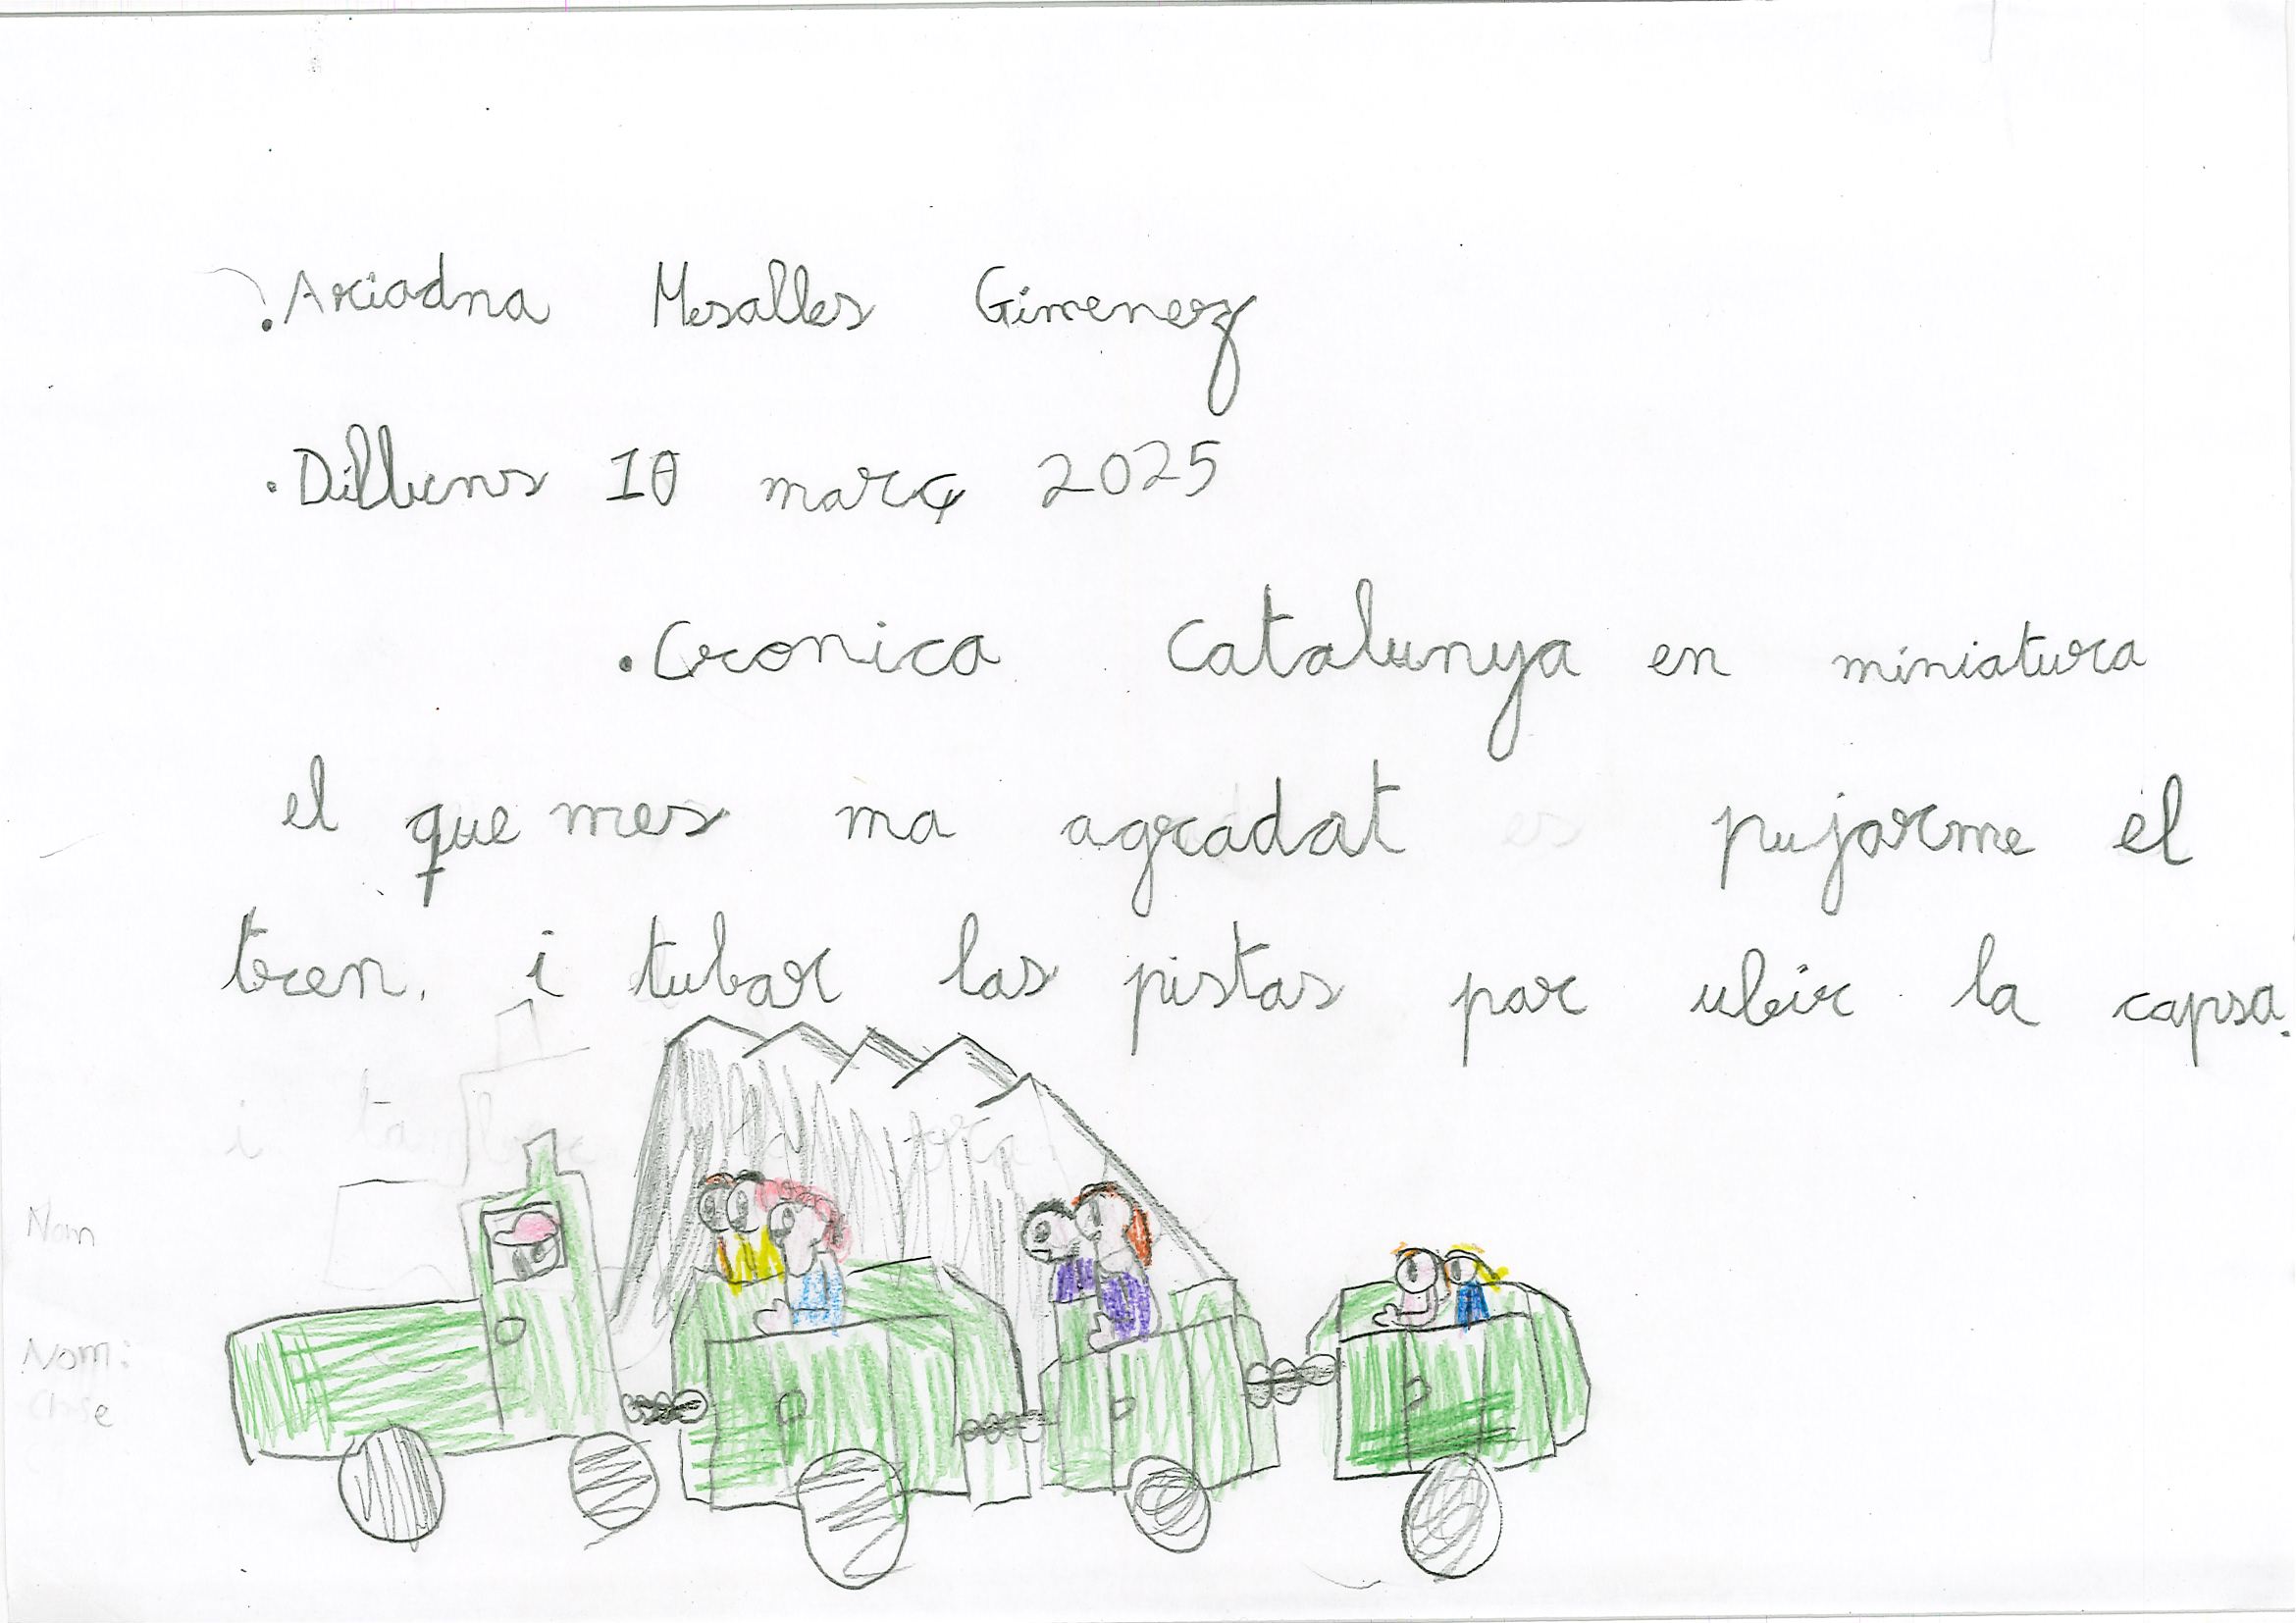 .Ariadna Mesalles Gimenez
.Dilluns 10 març 2025
.Cronica Catalunya en miniatura
el que mes ma agradat es pujarme el
tren. i tubar las pistas par ubrir la capsa.
i
Nom
Nom:
Clase